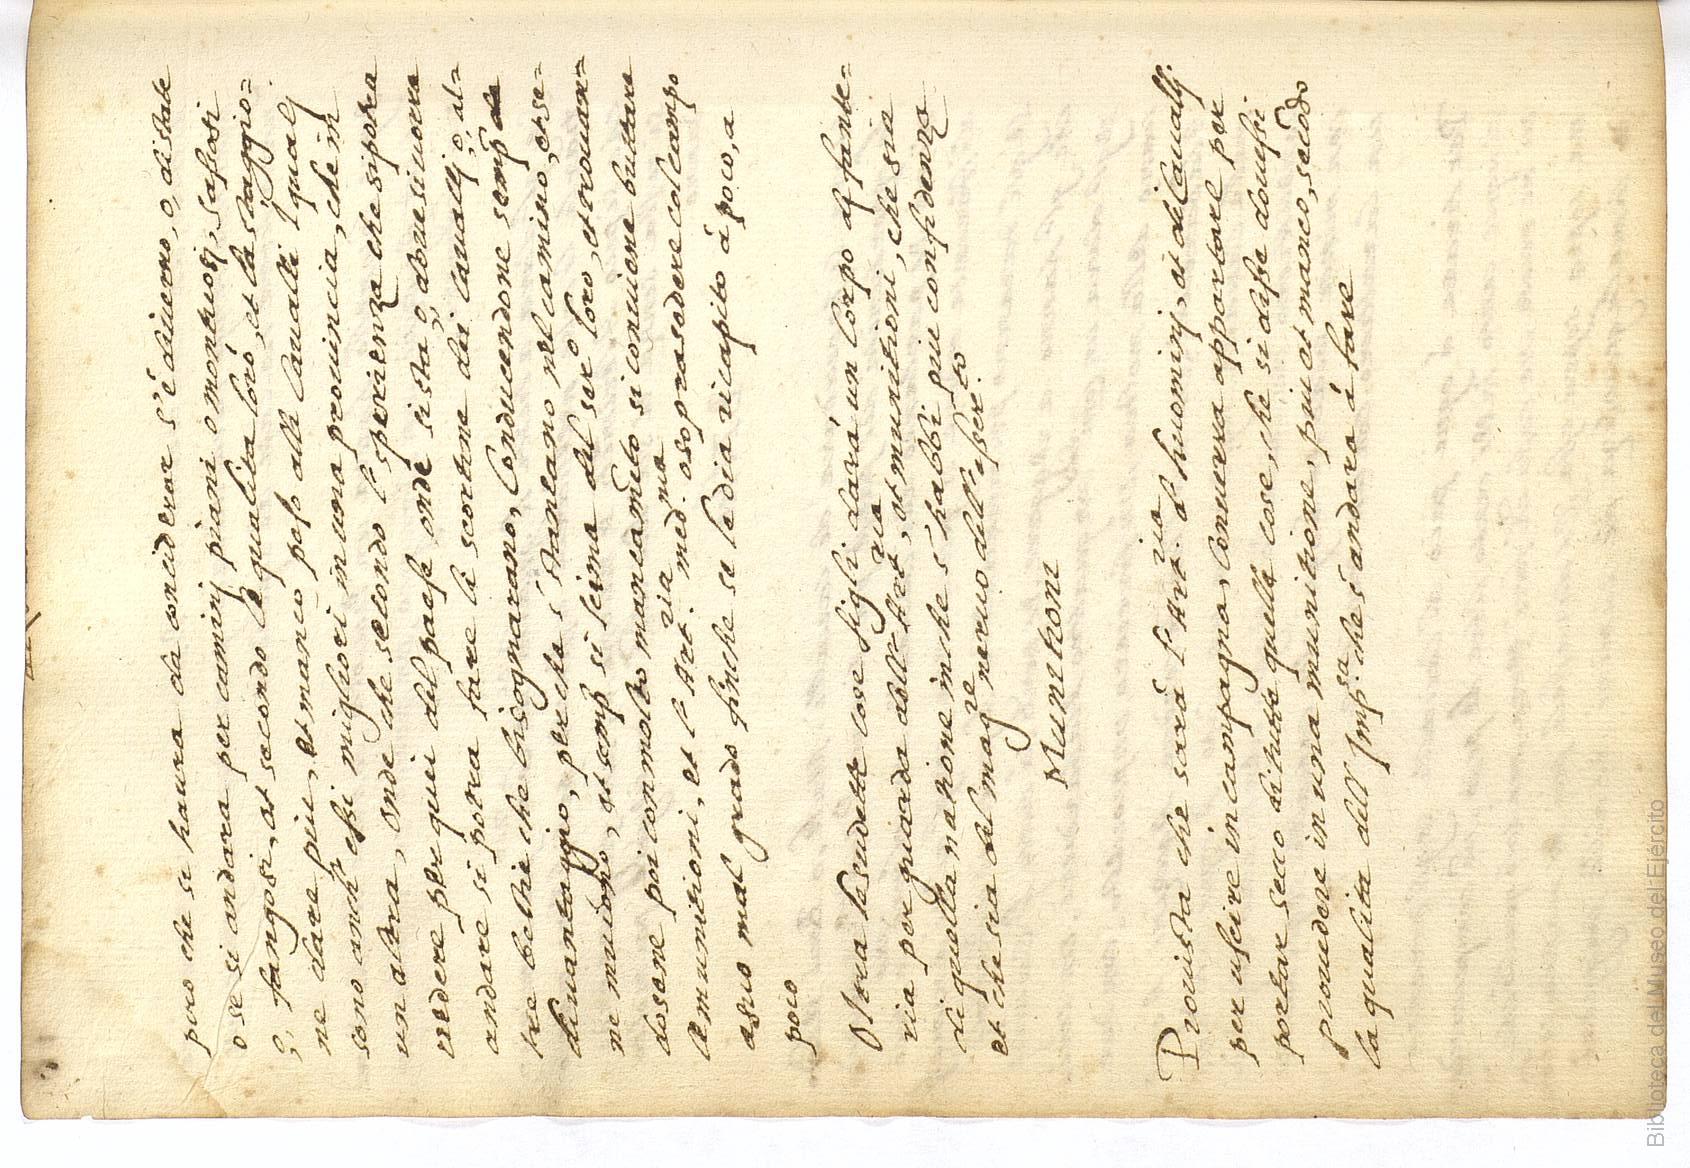 pero che si haura da considerar s'è d'inverno, o, d'istate
o se si andara per caminj piani o montuosj, sassosi
o, fangosi, et secondo la qualita loro, et la staggio=
ne dare piu, et manco peso alli Cavalli i qualj
sono anch'essi migliori in una provincia, che in
un altra, onde che secondo l'sperienza che si potra
vedere per quei del paese onde si sta, o, dove si vorra
andare si potra fare li scortine dei Cavallj, o, al=
tre bestie che bisognarano, Conducendone semp
d'avantaggio, perche s'stancano nel camino, et se
ne muiono, et semp si scima del serº loro, et trovan=
dosene poi con molto mancamēto si conviene buttare
Amunitioni, et l'Art.ria med.ma o sopprasedere col campo
a suo mal grado finche se le dia ricapito á poco, a
poco
Oltra le sudette cose se gli dará un Corpo dj fante=
ria per guardia dell'Art.ria, et munitioni, che sia
di quella natione in che s'habbi piu confidenza
et che sia del mag.re nervo dell'essercito
Munitioni
Provista che sará l'Art.ria d'huominj, et di Cavallj
per uscire in campagna, Converra apparecchiare per
portar secco di tutte quelle cose, che si disse doversi
provedere in una munitione, piu et manco, secōdo
la qualita dell'Imp.sa che s'andara á fare
Biblioteca del Museo del Ejército